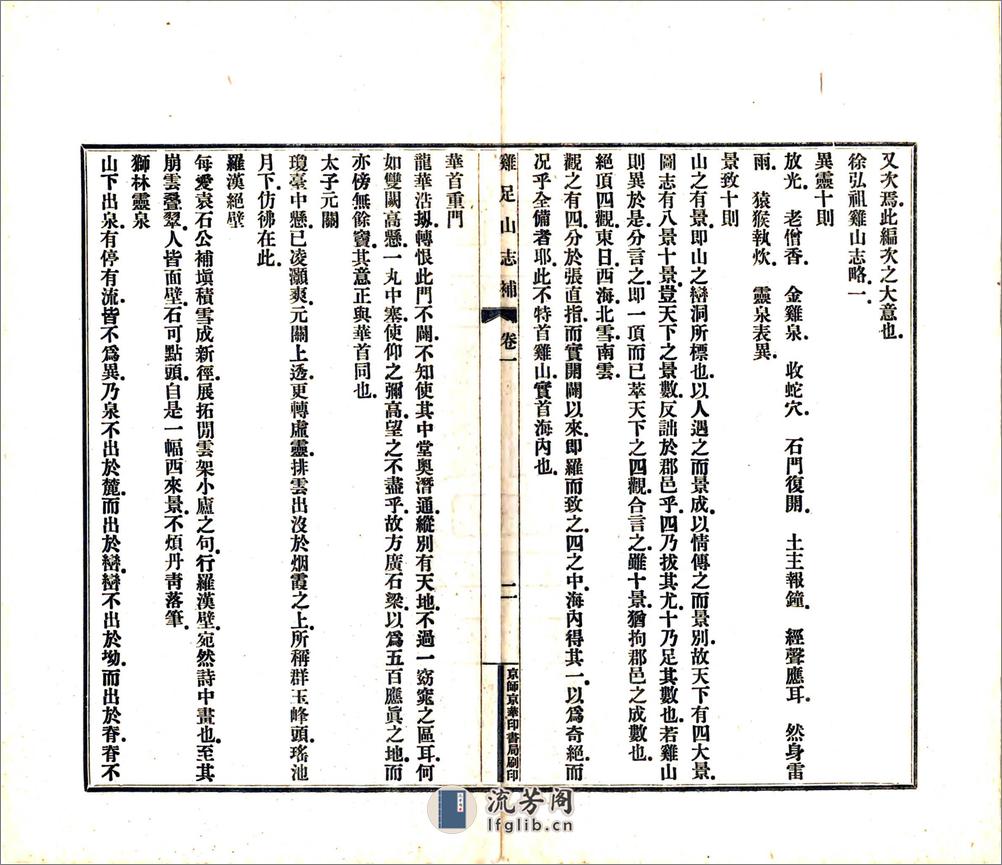 又次焉此編次之大意也
徐弘祖雞山志略一
異靈十則
放光　老僧香　金雞泉　收蛇穴　石門復開　土主報鐘　經聲應耳　然身雷
雨　猿猴執炊　靈泉表異
景致十則
山之有景即山之巒洞所標也以人遇之而景成以情傳之而景別故天下有四大景
圖志有八景十景豈天下之景數反詘於郡邑乎四乃拔其尤十乃足其數也若雞山
則異於是分言之即一頂而已萃天下之四觀合言之雖十景猶拘郡邑之成數也
絕頂四觀東日西海北雪南雲
觀之有四分於張直指而實開闢以來即羅而致之四之中海內得其一以爲奇絕而
況乎全備者耶此不特首雞山實首海內也
雞足山志補　卷一　二　京師京華印書局刷印
華首重門
龍華浩刼轉恨此門不闢不知使其中堂奧潛通縱別有天地不過一窈窕之區耳何
如雙闕高懸一丸中塞使仰之彌高望之不盡乎故方廣石梁以爲五百應眞之地而
亦傍無餘竇其意正與華首同也
太子元關
瓊臺中懸已凌灝爽元關上透更轉虛靈排雲出沒於烟霞之上所稱群玉峰頭瑤池
月下仿彿在此
羅漢絕壁
每愛袁石公補塡積雪成新徑展拓閒雲架小廬之句行羅漢壁宛然詩中畫也至其
崩雲疊翠人皆面壁石可點頭自是一幅西來景不煩丹靑落筆
獅林靈泉
山下出泉有停有流皆不爲異乃泉不出於麓而出於巒巒不出於坳而出於脊脊不
流芳阁
lfglib.cn